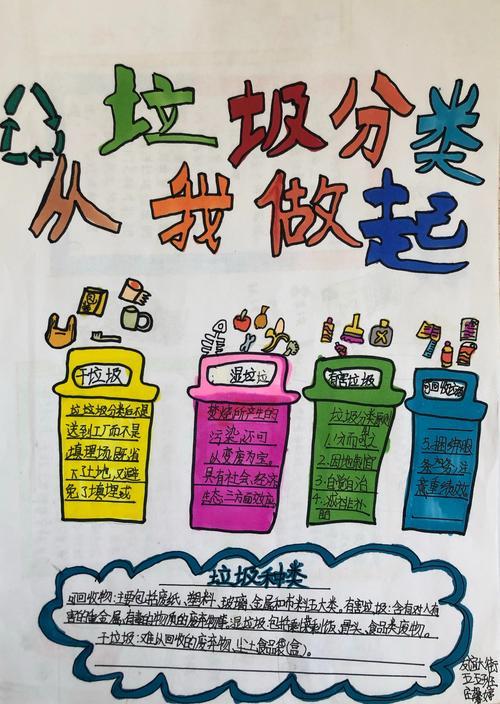 垃圾分类
从我做起
干垃圾
垃圾分类后不是
送到工厂而不是
填埋场,既省
下土地,又避
免了填埋或
湿垃圾
焚烧所产生的
污染,还可
以变废为宝。
具有社会、经济
生态三方面效应
有害垃圾
垃圾分类原则
1.分而
2.因地制宜
3.自觉自治
4.减排补
可回收
5.捆绑服
务
意重绩效
垃圾种类
可回收物:主要包括废纸、塑料、玻璃、金属和布料五大类。有害垃圾:含有对人有
害的重金属、有毒的物质的废弃物。湿垃圾:包括剩饭、骨头、食品类废物。
干垃圾:难以回收的废弃物,尘土食品袋(盒)。